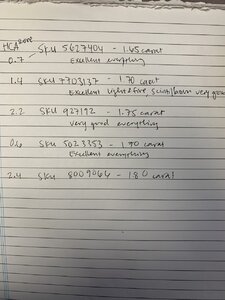 HCA score
SKU 5627404 - 1.65 carat
0.7 Excellent everything
1.4 SKU 7703137 - 1.70 carat
Excellent light & fire, very good
2.2 SKU 927192 - 1.75 carat
very good everything
0.6 SKU 5023353 - 1.90 carat
Excellent everything
2.4 SKU 8009064 - 1.80 carat